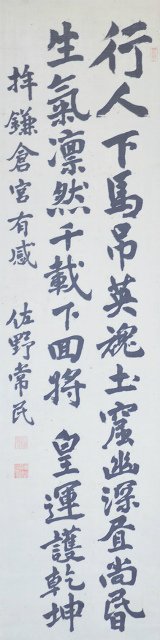 行人下馬吊英魂土窟幽深昼尚昏
生氣凛然千載下回将 皇運護乾坤
拝鎌倉宮有感 佐野常民